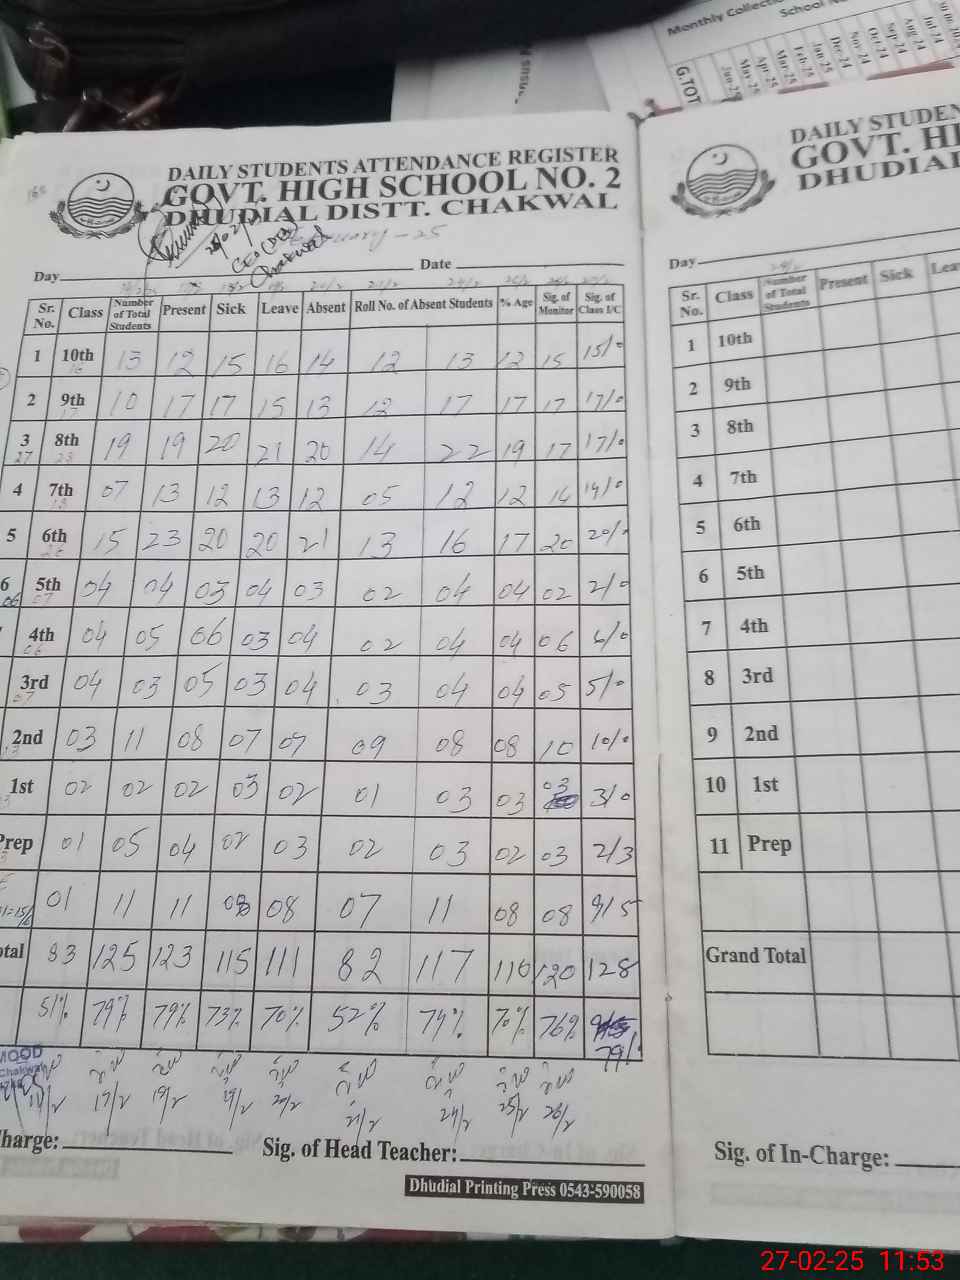 Monthly Collection
School N
G.TOT
Jun-25
May-25
Apr-25
Mar-25
Feb-25
Jan-25
Dec-24
Nov-24
Oct-24
Sep-24
Aug-24
Jul-24
DAILY STUDENTS ATTENDANCE REGISTER
GOVT. HIGH SCHOOL NO. 2
DHUDIAL DISTT. CHAKWAL
CEO (DEA)
Chakwal
February-25
Day Date
Sr. No. Class Number of Total Students Present Sick Leave Absent Roll No. of Absent Students % Age Sig. of Monitor Sig. of Class I/C
1 10th 13 12 15 16 14 12 13 12 15 15/0
16
2 9th 10 17 17 15 13 12 17 17 17 17/0
17
3 8th 19 19 20 21 20 14 22 19 17 17/0
27 23
4 7th 07 13 12 13 12 05 12 12 14 14/0
5 6th 15 23 20 20 21 13 16 17 20 20/0
6 5th 04 04 03 04 03 02 04 04 02 2/0
06 07
4th 04 05 06 03 04 02 04 04 06 6/0
06
3rd 04 03 05 03 04 03 04 04 05 5/0
07
2nd 03 11 08 07 07 09 08 08 10 10/0
13
1st 02 02 02 03 02 01 03 03 03 3/0
Prep 01 05 04 02 03 02 03 02 03 2/3
01 11 11 08 08 07 11 08 08 9/5
otal 83 125 123 115 111 82 117 110 120 128
51% 79% 79% 73% 70% 52% 74% 70% 76% 79%
MOOD
Chakwal
17/2 19/2 20/2 21/2 24/2 25/2 26/2
harge: Sig. of Head Teacher:
Dhudial Printing Press 0543-590058
DAILY STUDEN
GOVT. HI
DHUDIAL
Day
Sr. No. Class Number of Total Students Present Sick Lea
1 10th
2 9th
3 8th
4 7th
5 6th
6 5th
7 4th
8 3rd
9 2nd
10 1st
11 Prep
Grand Total
Sig. of In-Charge:
27-02-25 11:53